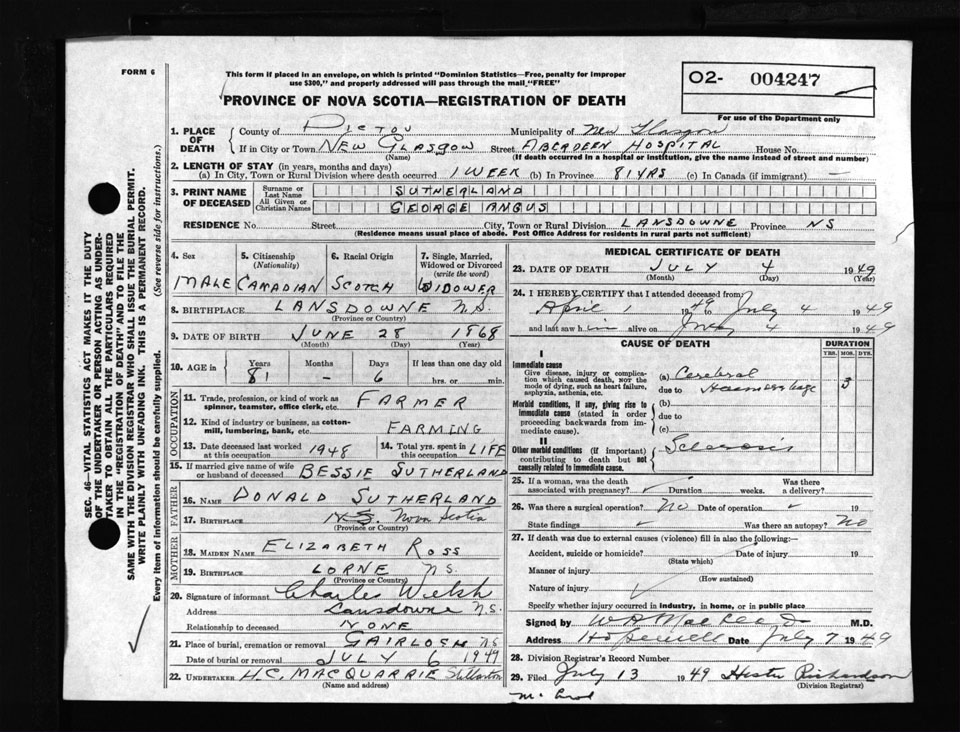 FORM 6
This form if placed in an envelope, on which is printed "Dominion Statistics—Free, penalty for improper
use $300," and properly addressed will pass through the mail "FREE"
O2- 004247
For use of the Department only
PROVINCE OF NOVA SCOTIA—REGISTRATION OF DEATH
SEC. 46—VITAL STATISTICS ACT MAKES IT THE DUTY
OF THE UNDERTAKER OR PERSON ACTING AS UNDER-
TAKER TO OBTAIN ALL THE PARTICULARS REQUIRED
IN THE "REGISTRATION OF DEATH" AND TO FILE THE
SAME WITH THE DIVISION REGISTRAR WHO SHALL ISSUE THE BURIAL PERMIT.
WRITE PLAINLY WITH UNFADING INK. THIS IS A PERMANENT RECORD.
Every item of information should be carefully supplied. (See reverse side for instructions.)
1. PLACE OF DEATH County of PICTOU Municipality of New Glasgow
If in City or Town NEW GLASGOW Street ABERDEEN HOSPITAL House No.
(Name) (If death occurred in a hospital or institution, give the name instead of street and number)
2. LENGTH OF STAY (in years, months and days)
(a) In City, Town or Rural Division where death occurred 1 WEEK (b) In Province 81 YRS (c) In Canada (if immigrant) —
3. PRINT NAME OF DECEASED Surname or Last Name SUTHERLAND
All Given or Christian Names GEORGE ANGUS
RESIDENCE No. Street City, Town or Rural Division LANSDOWNE Province NS
(Residence means usual place of abode. Post Office Address for residents in rural parts not sufficient)
4. Sex 5. Citizenship (Nationality) 6. Racial Origin 7. Single, Married, Widowed or Divorced (write the word)
MALE CANADIAN SCOTCH WIDOWER
8. BIRTHPLACE LANSDOWNE N.S.
(Province or Country)
9. DATE OF BIRTH JUNE 28 1868
(Month) (Day) (Year)
10. AGE in Years Months Days If less than one day old
81 - 6 hrs. or min.
OCCUPATION
11. Trade, profession, or kind of work as spinner, teamster, office clerk, etc. FARMER
12. Kind of industry or business, as cotton-mill, lumbering, bank, etc. FARMING
13. Date deceased last worked at this occupation 1948 14. Total yrs. spent in this occupation LIFE
15. If married give name of wife or husband of deceased BESSIE SUTHERLAND
FATHER
16. NAME DONALD SUTHERLAND
17. BIRTHPLACE N.S. Nova Scotia
(Province or Country)
MOTHER
18. MAIDEN NAME ELIZABETH ROSS
19. BIRTHPLACE LORNE N.S.
(Province or Country)
20. Signature of informant Charles Welsh
Address Lansdowne N.S.
Relationship to deceased NONE
21. Place of burial, cremation or removal GAIRLOCH NS
Date of burial or removal JULY 6 1949
22. UNDERTAKER H.C. MACQUARRIE Stellarton
(Name and address)
MEDICAL CERTIFICATE OF DEATH
23. DATE OF DEATH JULY 4 1949
(Month) (Day) (Year)
24. I HEREBY CERTIFY that I attended deceased from
April 1 1949 to July 4 1949
and last saw him alive on July 4 1949
CAUSE OF DEATH DURATION
YRS. MOS. DYS.
I
Immediate cause
Give disease, injury or complication which caused death, NOT the mode of dying, such as heart failure, asphyxia, asthenia, etc.
(a) Cerebral
due to Haemorrhage 3
Morbid conditions, if any, giving rise to immediate cause (stated in order proceeding backwards from immediate cause).
(b)
due to
(c)
II
Other morbid conditions (if important) contributing to death but not causally related to immediate cause.
Sclerosis
25. If a woman, was the death associated with pregnancy? Duration weeks. Was there a delivery?
26. Was there a surgical operation? No Date of operation 19
State findings Was there an autopsy? No
27. If death was due to external causes (violence) fill in also the following:—
Accident, suicide or homicide? Date of injury 19
(State which)
Manner of injury
(How sustained)
Nature of injury
Specify whether injury occurred in industry, in home, or in public place
Signed by M.D.
Address Hopewell Date July 7 1949
28. Division Registrar's Record Number
29. Filed July 13 1949 Hester Richardson
(Division Registrar)